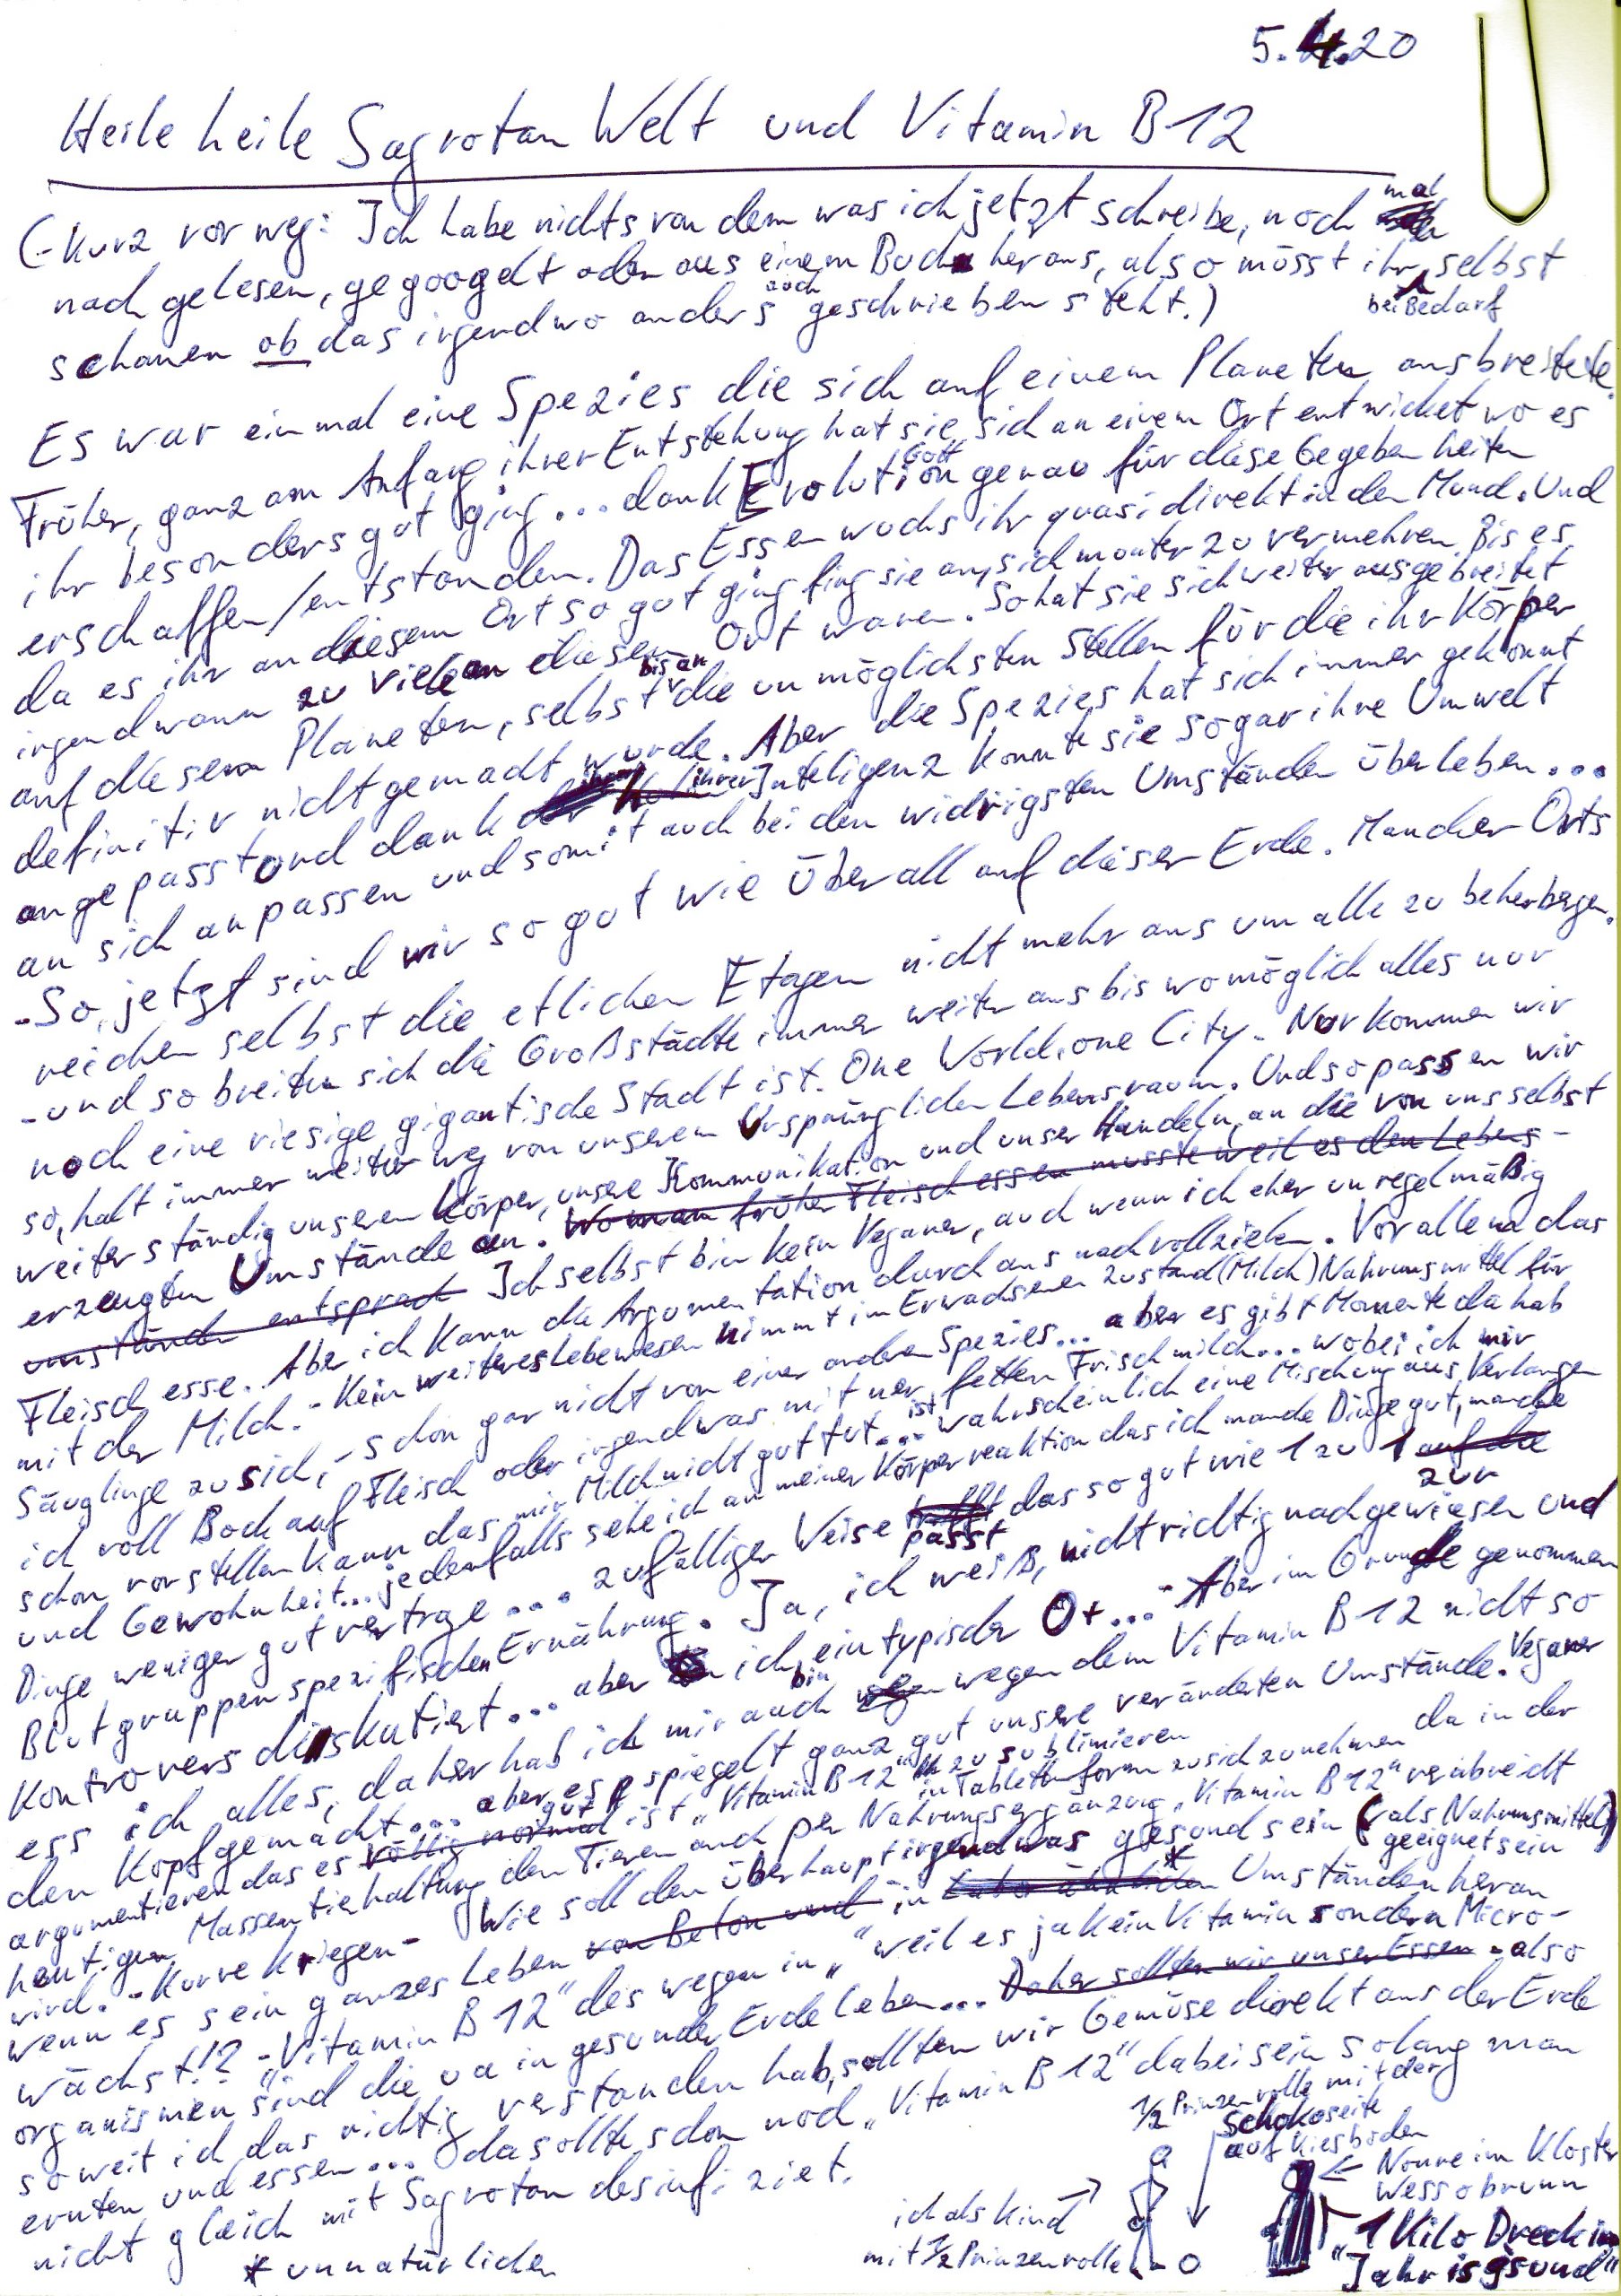 5.4.20
Heile heile Sagrotan Welt und Vitamin B12
(-kurz vorweg: Ich habe nichts von dem was ich jetzt schreibe, noch mal
nach gelesen, gegoogelt oder aus einem Buch heraus, also müsst ihr bei Bedarf selbst
schauen ob das irgendwo anders auch geschrieben steht.)
Es war einmal eine Spezies die sich auf einem Planeten ausbreitete.
Früher, ganz am Anfang ihrer Entstehung hat sie sich an einem Ort entwickelt wo es
ihr besonders gut ging... dank Evolution Gott genau für diese Gegebenheiten
erschaffen/entstanden. Das Essen wuchs ihr quasi direkt in den Mund. Und
da es ihr an diesem Ort so gut ging fing sie an, sich munter zu vermehren. Bis es
irgendwann zu viele an diesem Ort waren. So hat sie sich weiter ausgebreitet
auf diesem Planeten, selbst bis an die unmöglichsten Stellen für die ihr Körper
definitiv nicht gemacht wurde. Aber die Spezies hat sich immer gekonnt
angepasst und dank ihrer Inteligenz konnte sie sogar ihre Umwelt
an sich anpassen und somit auch bei den widrigsten Umständen überleben...
-So, jetzt sind wir so gut wie überall auf dieser Erde. Mancher Orts
reichen selbst die etlichen Etagen nicht mehr aus um alle zu beherbergen.
-und so breiten sich die Großstädte immer weiter aus bis womöglich alles nur
noch eine riesige gigantische Stadt ist. One World, one City. Nur kommen wir
so, halt immer weiter weg von unserem Ursprünglichen Lebensraum. Und so passen wir
weiter ständig unseren Körper, unsere Kommunikation und unser Handeln, an die von uns selbst
erzeugten Umstände an. Wo man früher Fleisch essen musste weil es den Lebens-
umständen entsprach Ich selbst bin kein Veganer, auch wenn ich eher unregelmäßig
Fleisch esse. Aber ich kann die Argumentation durchaus nachvollziehen. Vor allem das
mit der Milch. - Kein weiteres Lebewesen nimmt im Erwachsenen Zustand (Milch) Nahrungsmittel für
Säuglinge zu sich, - schon gar nicht von einer anderen Spezies... aber es gibt Momente da hab
ich voll Bock auf Fleisch oder irgendwas mit ner fetten Frischmilch... wobei ich mir
schon vorstellen kann das mir Milch nicht gut tut... ist wahrscheinlich eine Mischung aus Verlangen
und Gewohnheit... jedenfalls sehe ich an meiner Körperreaktion das ich manche Dinge gut, manche
Dinge weniger gut vertrage... zufälliger Weise passt das so gut wie 1 zu 1 auf die zur
Blutgruppen spezifischen Ernährung. Ja, ich weiß, nicht richtig nachgewiesen und
kontrovers diskutiert... aber ich bin ein typischer 0+... - Aber im Grunde genommen
ess ich alles, daher hab ich mir auch wegen dem Vitamin B12 nicht so
den Kopf gemacht... aber es spiegelt ganz gut unsere veränderten Umstände. Veganer
argumentieren das es völlig normal gut ist "Vitamin B12" zu sublimieren in Tablettenform zu sich zu nehmen da in der
heutigen Massentierhaltung den Tieren auch per Nahrungsergänzung "Vitamin B12" verabreicht
wird. - Kurve kriegen - Wie soll den überhaupt irgendwas gesund sein (als Nahrungsmittel) geeignet sein
wenn es sein ganzes Leben von Beton und in * Umständen heran
wächst!? - "Vitamin B12" deswegen in " " weil es ja kein Vitamin sondern Micro-
organismen sind die va in gesunder Erde leben... Daher sollten wir unser Essen - also
soweit ich das richtig verstanden hab, sollten wir Gemüse direkt aus der Erde
ernten und essen... da sollte schon noch "Vitamin B12" dabei sein solang man
nicht gleich mit Sagrotan desinfiziert.
* unnatürlichen
1/2 Prinzenrolle mit der
Schokoseite
auf Kiesboden
ich als Kind
mit 1/2 Prinzenrolle
Nonne im Kloster
Wessobrunn
"1 Kilo Dreck im
Jahr is gsund"